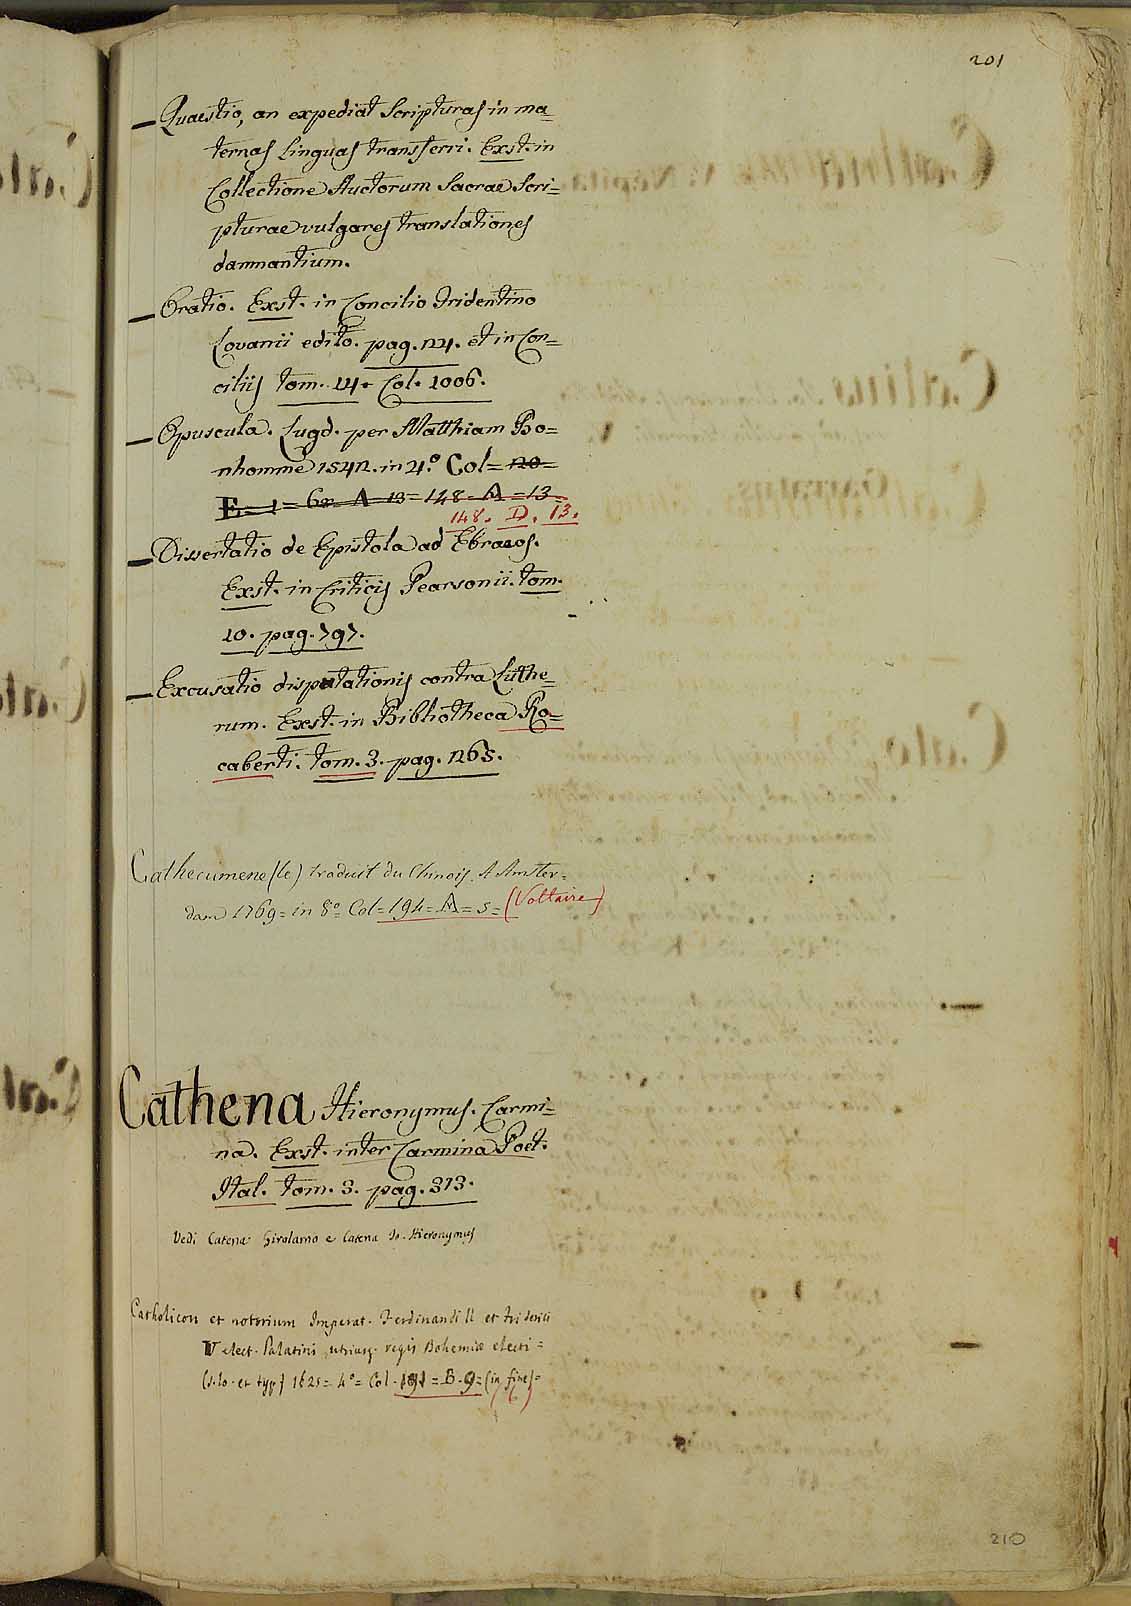 201
— Quaestio, an expediat Scripturas in ma=
ternas Linguas transferri. Exst. in
Collectione Auctorum Sacrae Scri=
pturae vulgares translationes
damnantium.
— Oratio. Exst. in Concilio Tridentino
Lovanii edito. pag. 124. et in Con=
ciliis tom. 14. Col. 1006.
— Opuscula. Lugd. per Matthiam Bo=
nhomme 1542. in 4.° Col= 20=
E=1= 62 A 13= 148= A =13.
148. D. 13.
— Dissertatio de Epistola ad Ebraeos.
Exst. in Criticis Pearsonii. tom.
10. pag. 797.
— Excusatio disputationis contra Luthe=
rum. Exst. in Bibliotheca Ro=
caberti. tom. 3. pag. 1265.
Cathecumene (le) traduit du Chinois. A Amster=
dam 1769= in 8°= Col=194= A = 5= (Voltaire)
Cathena Hieronymus. Carmi=
na. Exst. inter Carmina Poet.
Ital. tom. 3. pag. 313.
Vedi Catena Girolamo e Catena Io. Hieronymus
Catholicon et notorium Imperat. Ferdinandi II et Friderici
V elect. Palatini utriusq. regis Bohemiae electi=
(s. lo. et typ) 1621= 4°= Col. 191= B. 9= (in fine)=
210